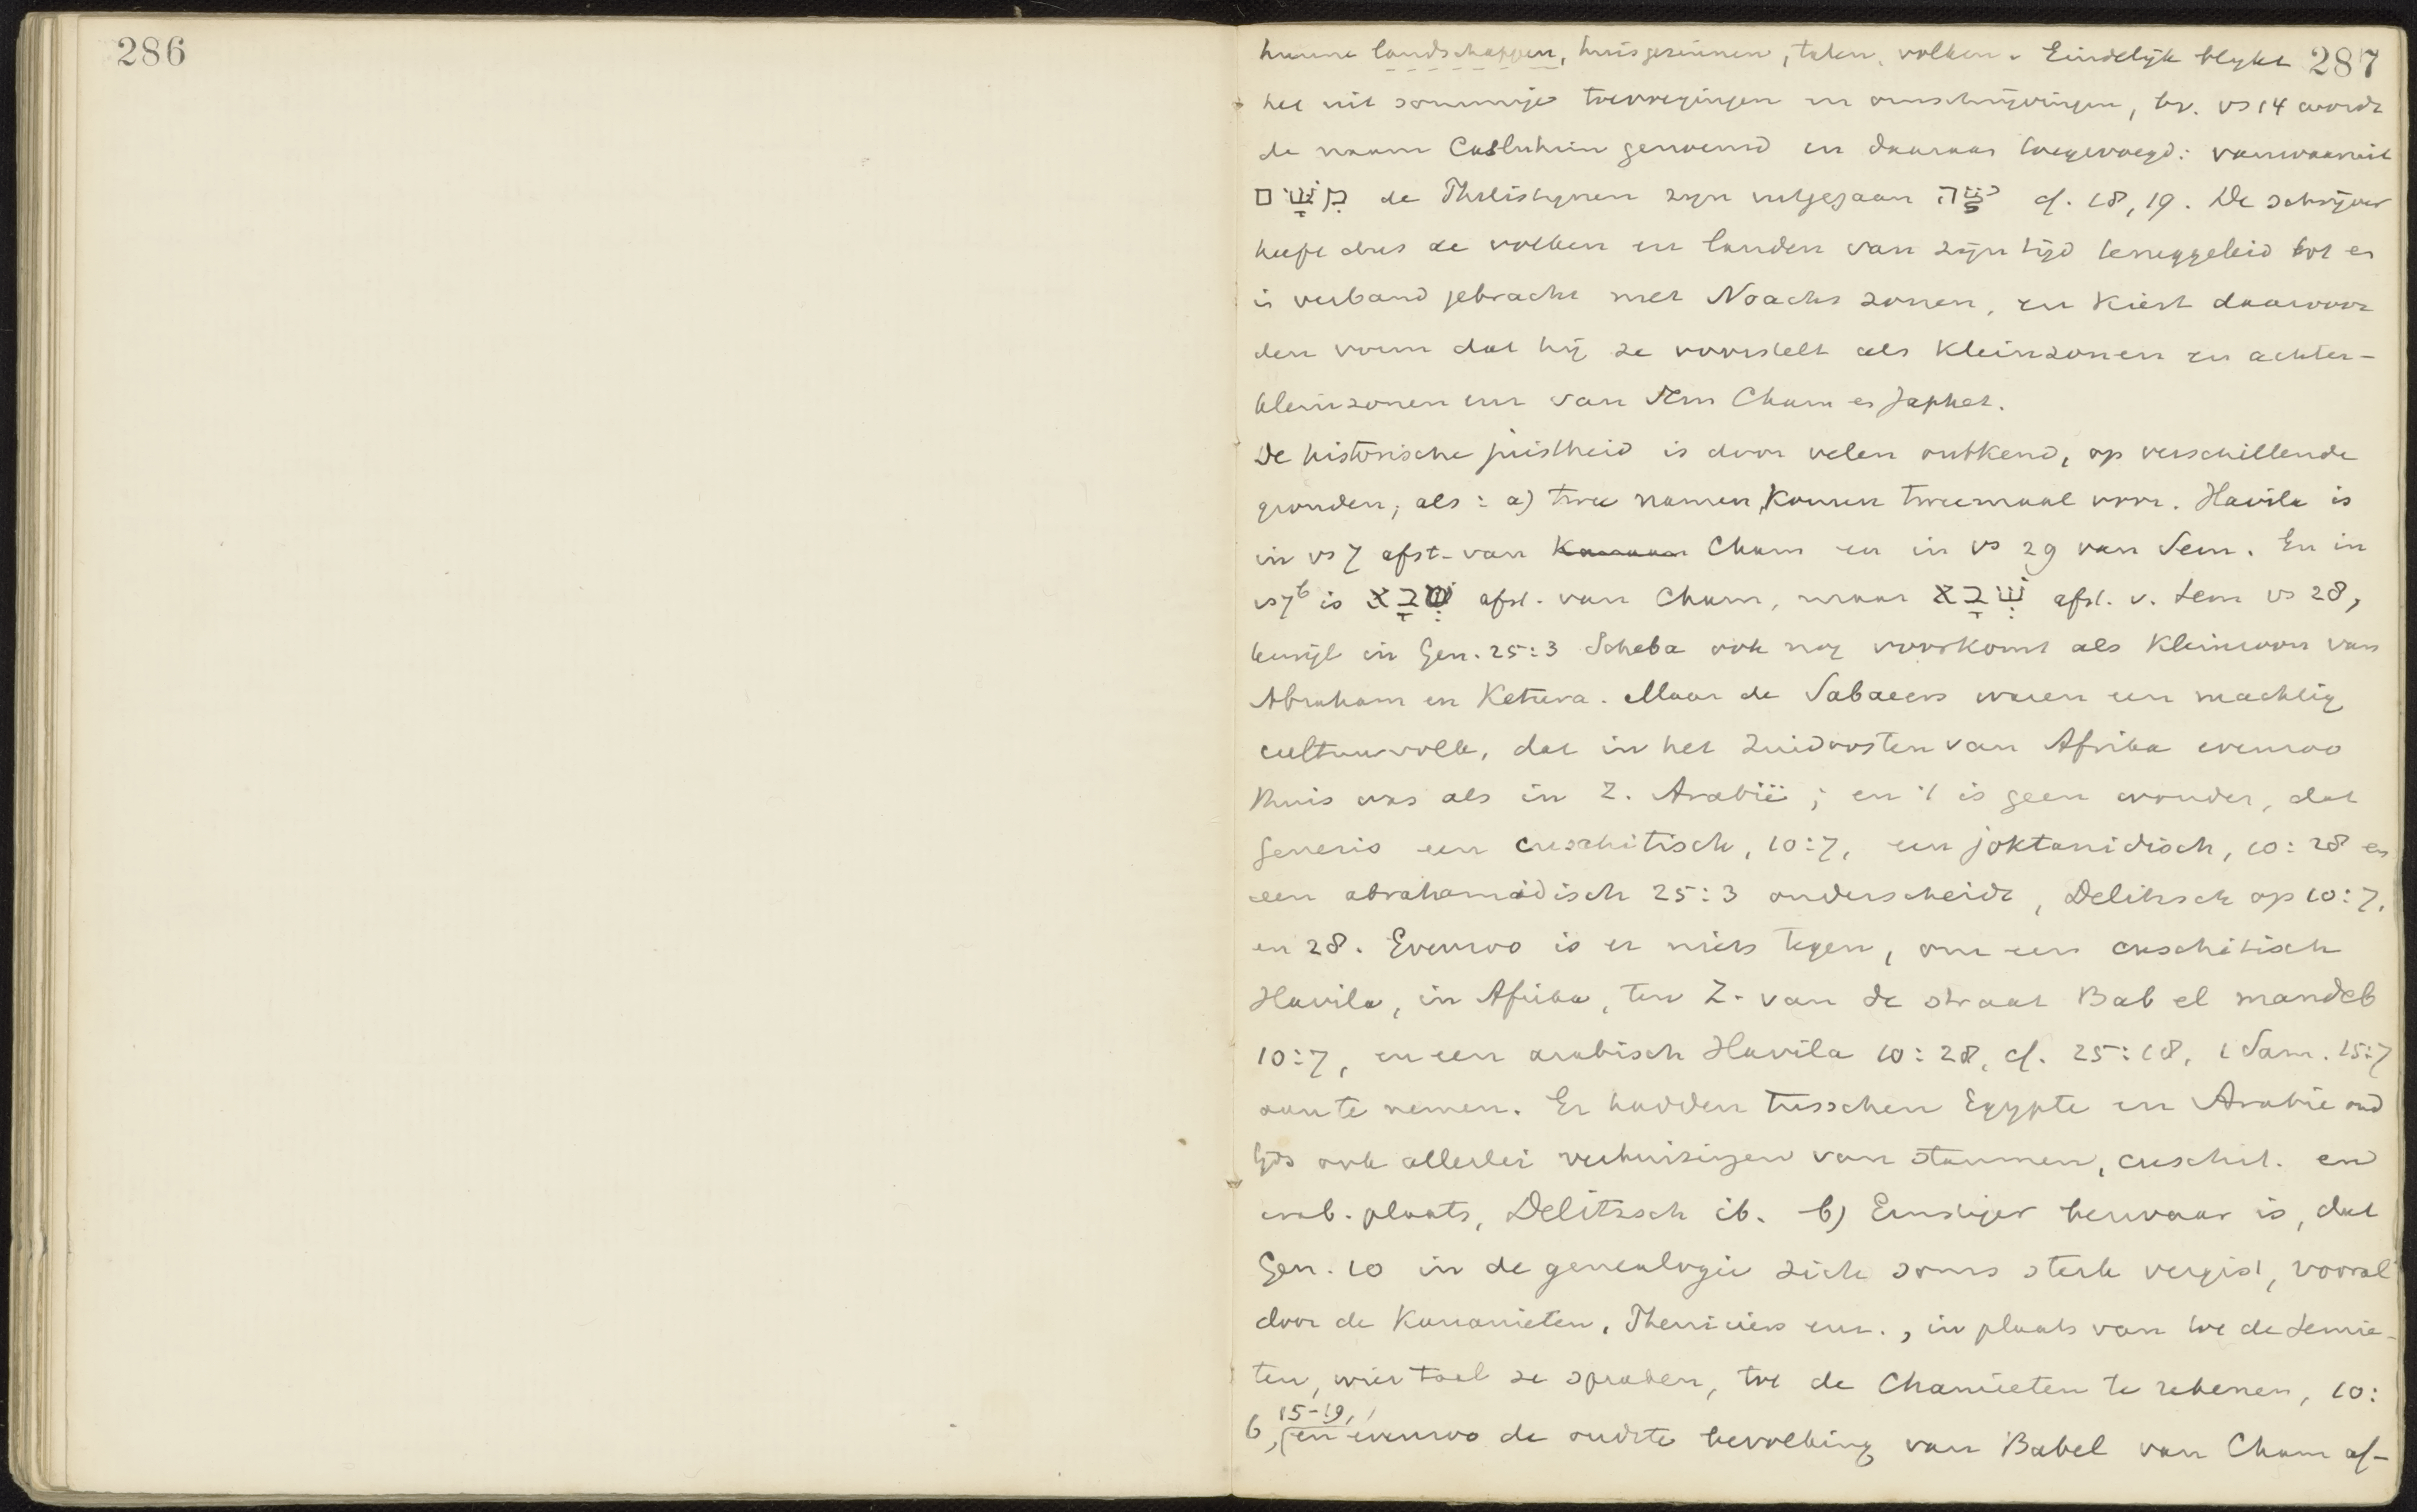 286
287
hunne landschappen, huisgezinnen, talen, volken. Eindelijk blijkt
het uit sommige toevoegingen en omschrijvingen, bv. vs 14 wordt
de naam Casluhim genoemd en daaraan toegevoegd: vanwaaruit
מִשָּׁם de Philistijnen zijn uitgegaan cf. 18, 19. De schrijver
heeft dus de volken en landen van zijn tijd teruggeleid tot en
in verband gebracht met Noachs zonen, en kiest daarvoor
den vorm dat hij ze voorstelt als kleinzonen en achter-
kleinzonen enz van Sem Cham en Japhet.
De historische juistheid is door velen ontkend, op verschillende
gronden, als: a) twee namen komen tweemaal voor. Havila is
in vs 7 afst. van Kanaan Cham en in vs 29 van Sem. En in
vs 7b is שְׁבָא afst. van Cham, maar שְׁבָא afst. v. Sem vs 28,
terwijl in Gen. 25:3 Scheba ook nog voorkomt als kleinzoon van
Abraham en Ketura. Maar de Sabaeers waren een machtig
cultuurvolk, dat in het Zuidoosten van Afrika evenzoo
thuis was als in Z. Arabië; en 't is geen wonder, dat
Genesis een cuschitisch, 10:7, een joktanidisch, 10:28 en
een abrahamidisch 25:3 onderscheidt, Delitzsch op 10:7.
en 28. Evenzoo is er niets tegen, om een cuschitisch
Havila, in Afrika, ten Z. van de straat Bab el mandeb
10:7, en een arabisch Havila 10:28, cf. 25:18, 1 Sam. 15:7
aan te nemen. Er hadden tusschen Egypte en Arabie oud
tijds ook allerlei verhuizingen van stammen, cuschit. en
arab. plaats, Delitzsch ib. b) Ernstiger bezwaar is, dat
Gen. 10 in de genealogie zich soms sterk vergist, vooral
door de Kanaanieten, Pheniciers enz., in plaats van tot de Semie-
ten, wier taal ze spraken, tot de Chamieten te rekenen, 10:
6, 15-19, (en evenzoo de oudste bevolking van Babel van Cham af-